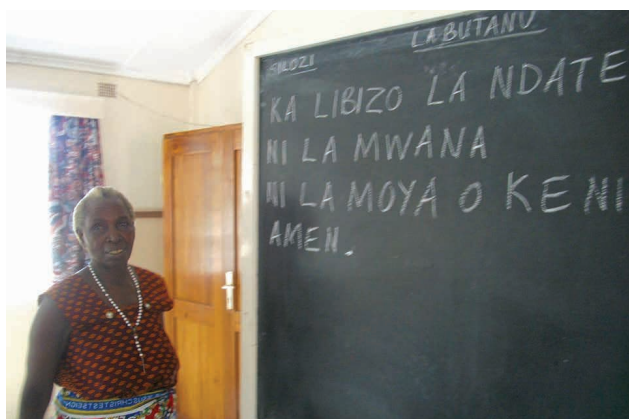 SILOZI
LABUTANU
KA LIBIZO LA NDATE
NI LA MWANA
NI LA MOYA O KENI
AMEN.